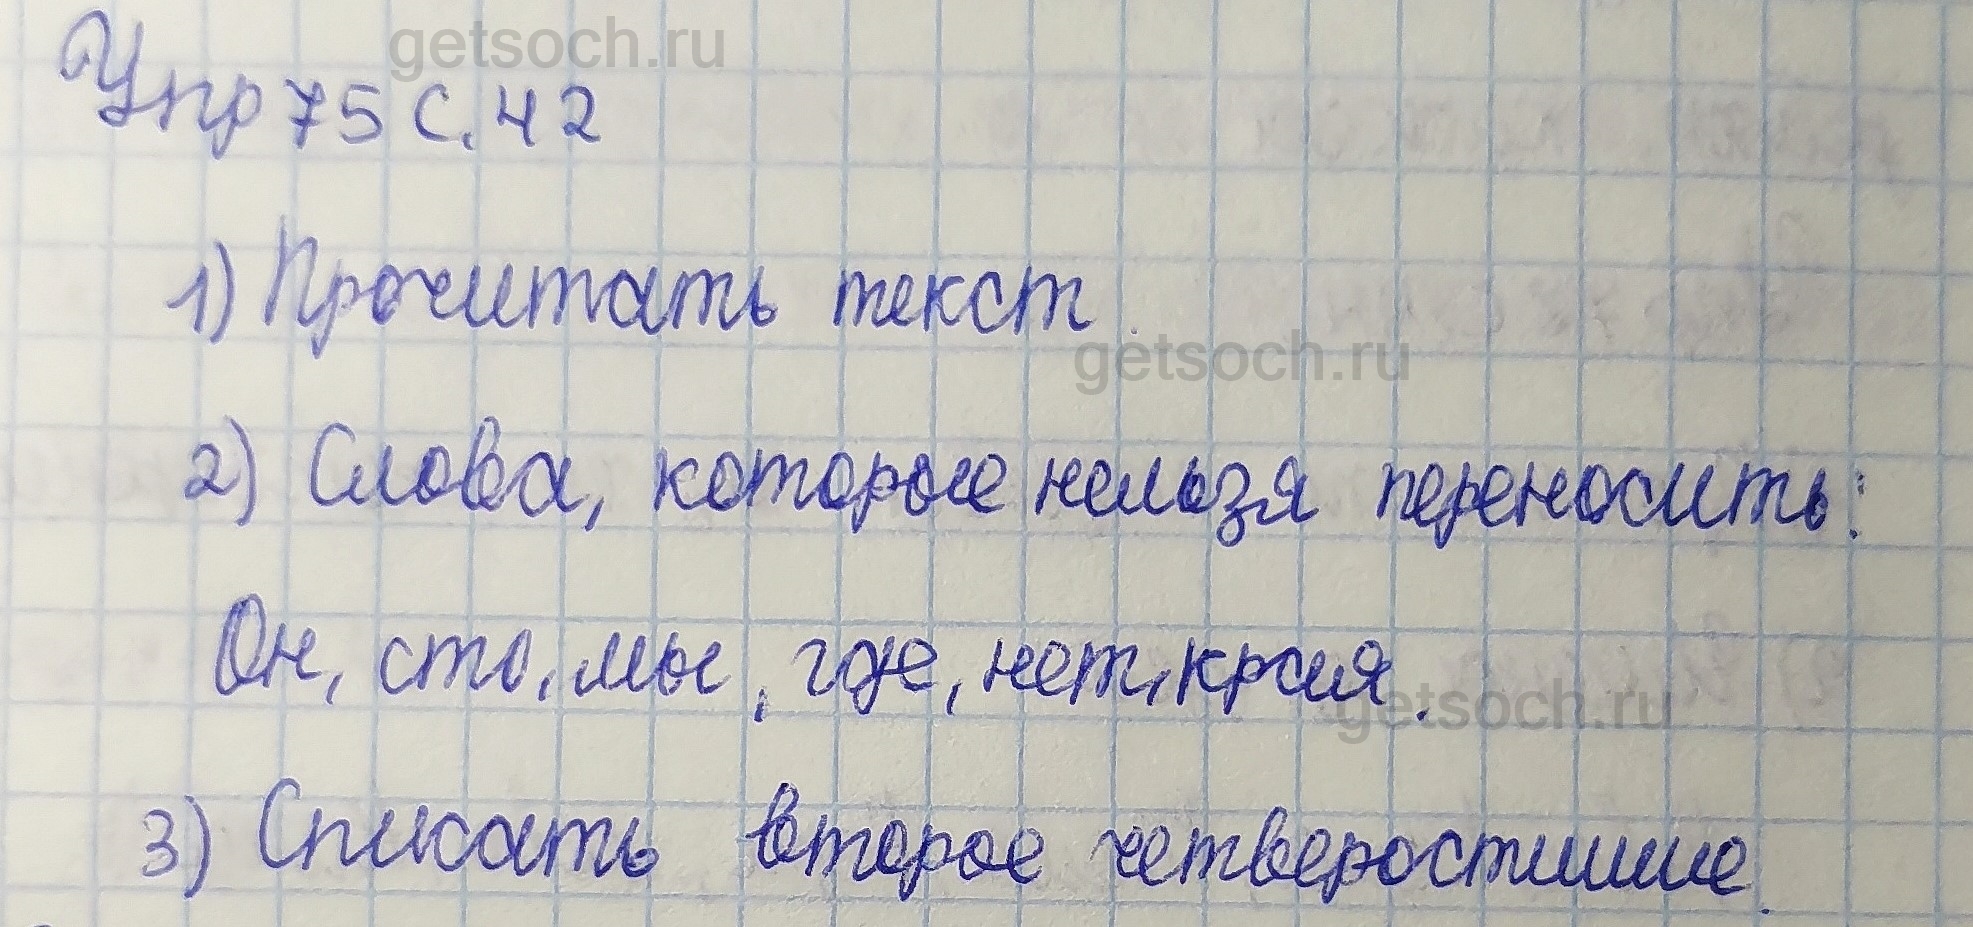 getsoch.ru
Упр 75 с. 42
1) Прочитать текст.
getsoch.ru
2) Слова, которые нельзя переносить:
Он, сто, мы, где, нет, края.
getsoch.ru
3) Списать второе четверостишие.